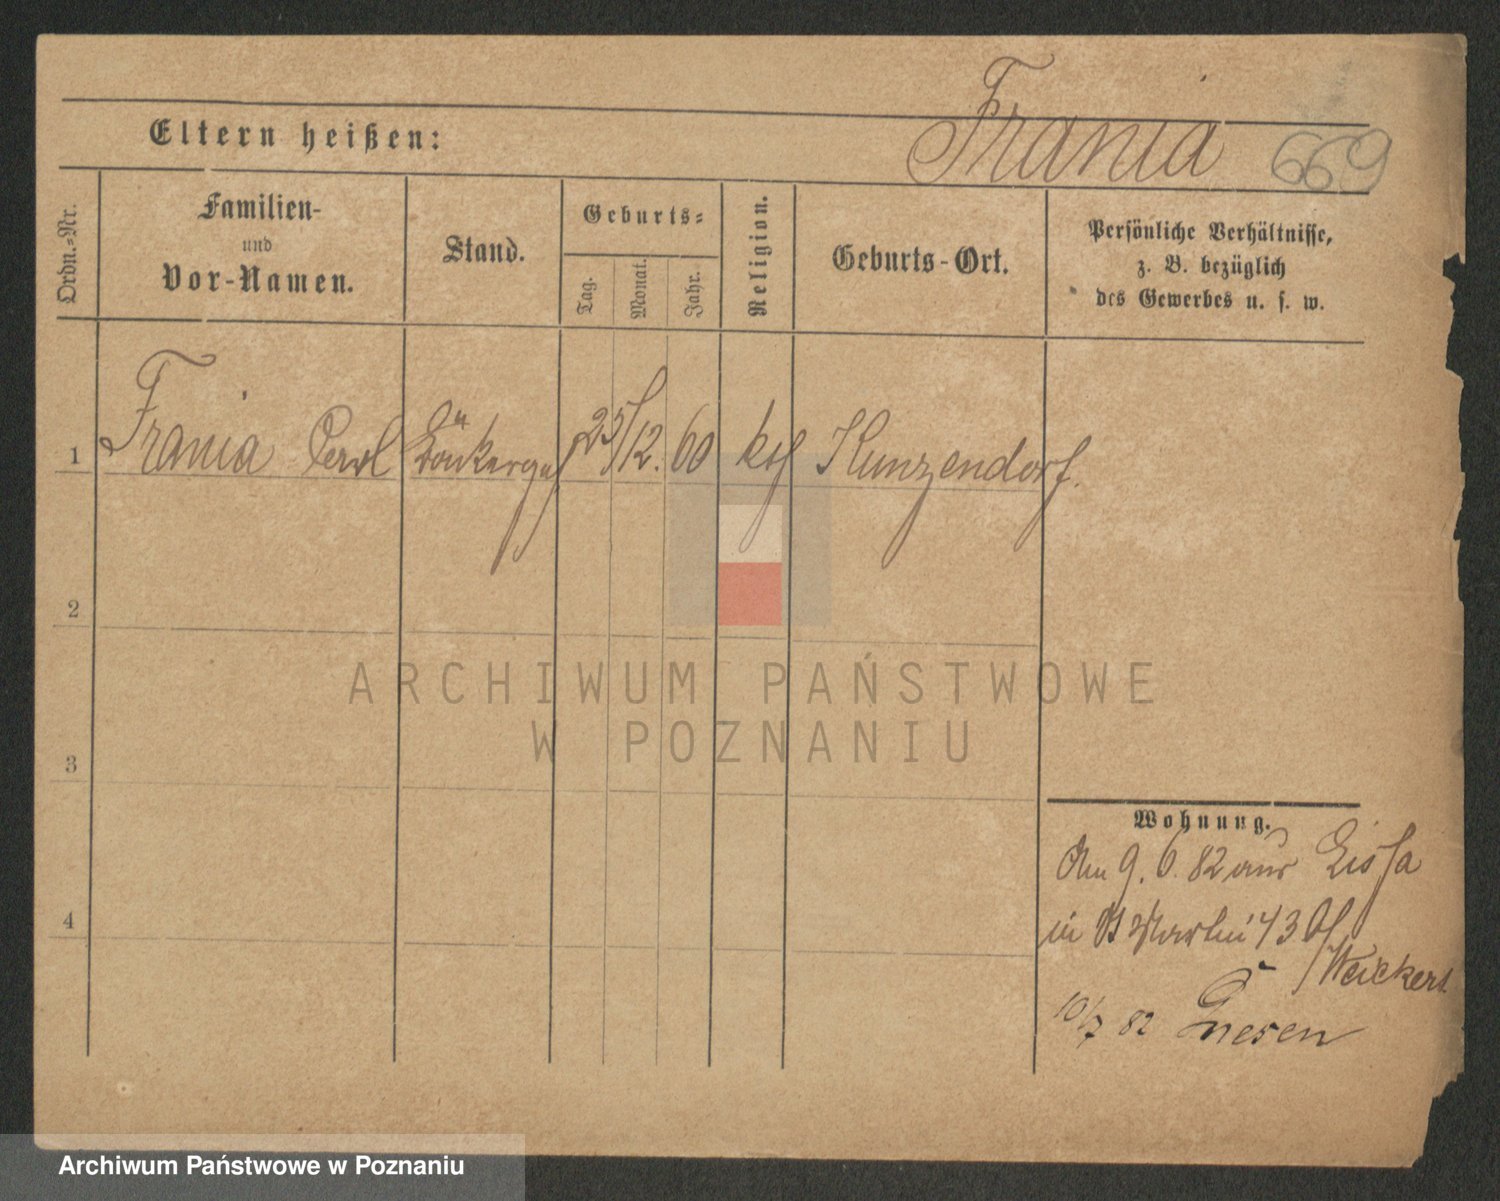 Frania 669
Eltern heißen:
Ordn.-Nr.
Familien-
und
Vor-Namen.
Stand.
Geburts-
Tag.
Monat.
Jahr.
Religion.
Geburts-Ort.
Persönliche Verhältnisse,
z. B. bezüglich
des Gewerbes u. s. w.
1 Frania Carl 25/12. 60 kth Kunzendorf.
2
ARCHIWUM PAŃSTWOWE
W POZNANIU
3
Wohnung.
Am 9. 6. 82 aus Lissa
in St Martin 43
Weickert
4
10/7 82 Gnesen
Archiwum Państwowe w Poznaniu